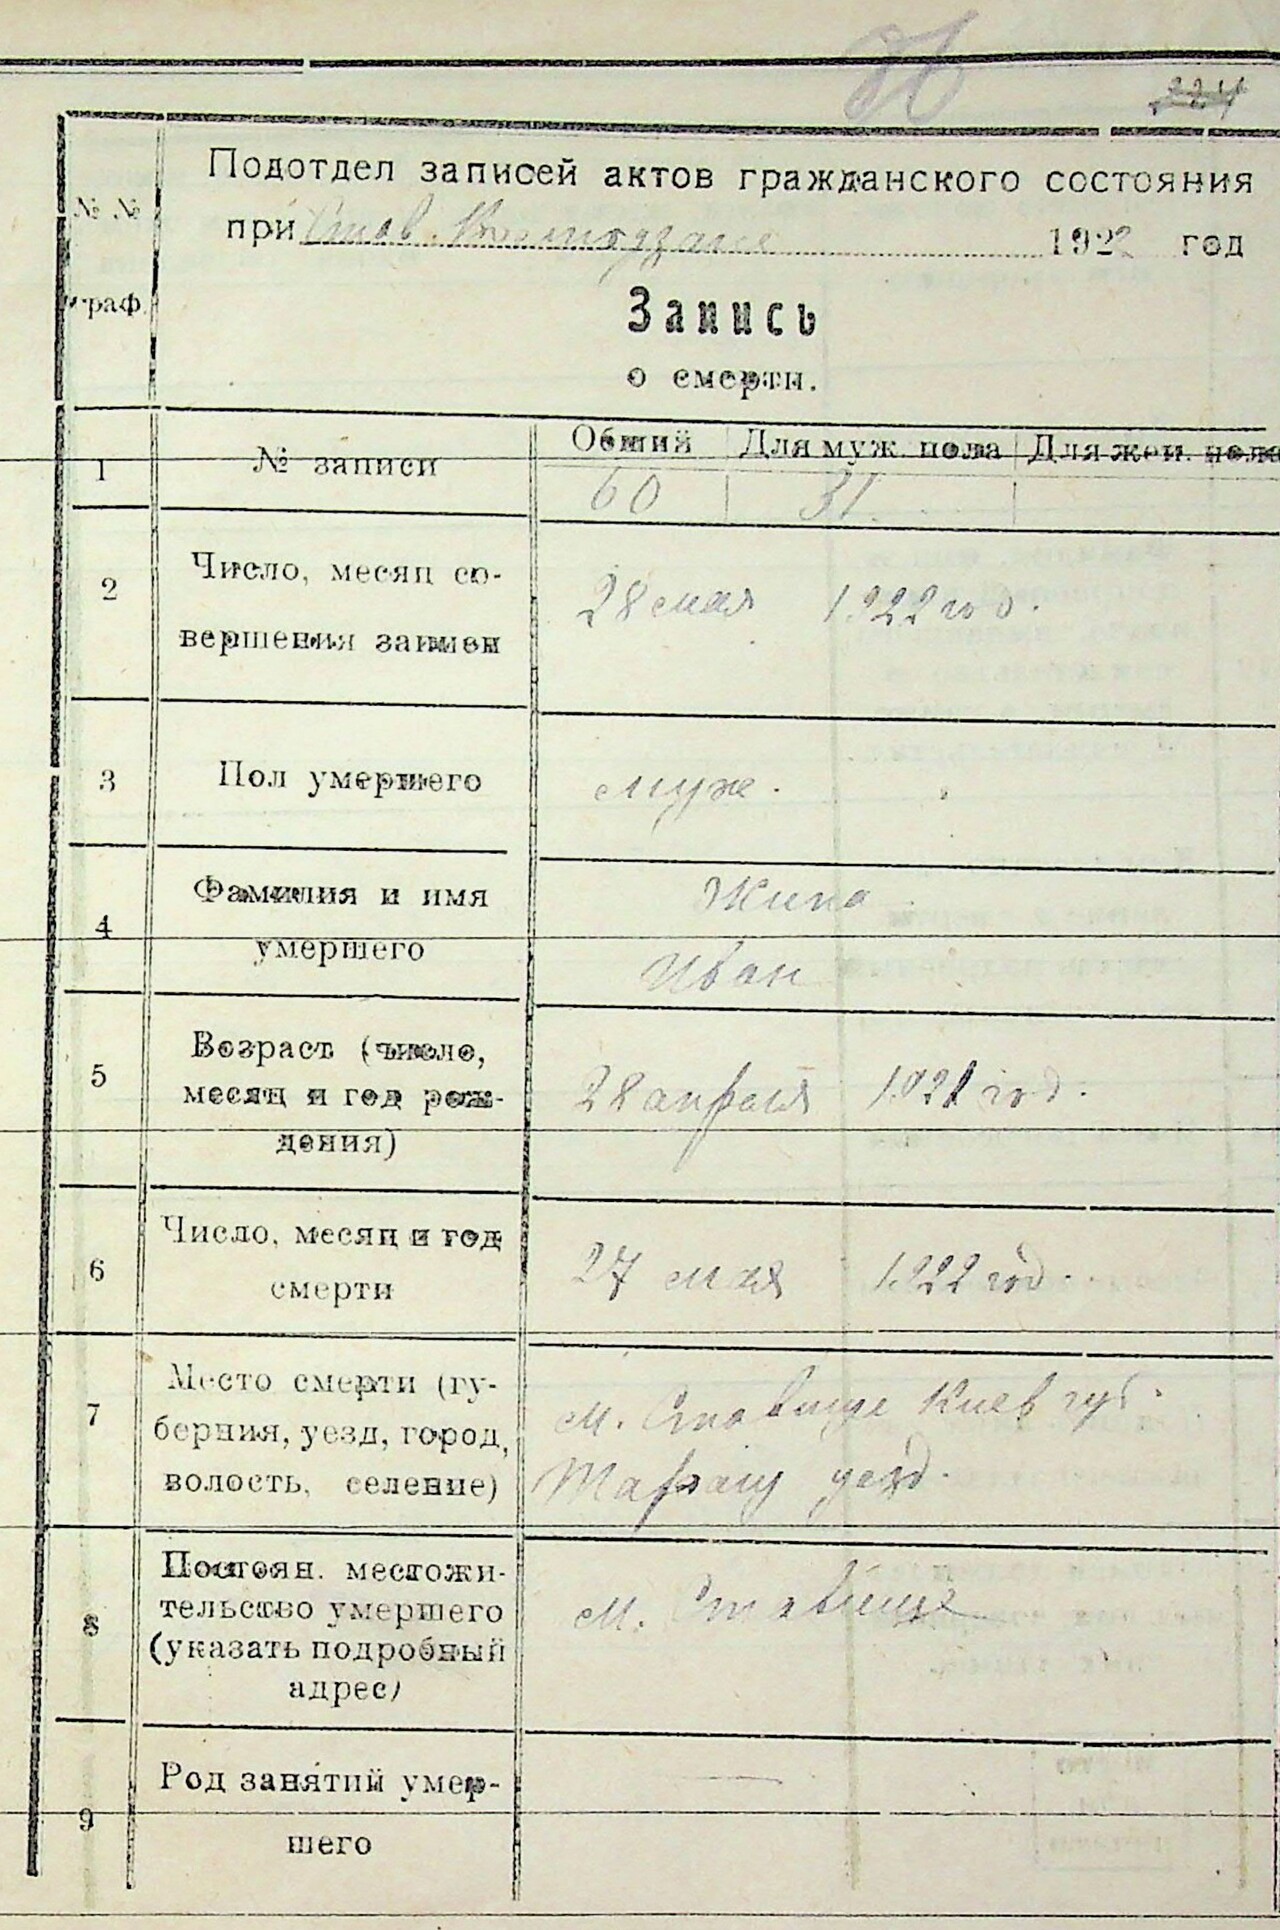 224
Подотдел записей актов гражданского состояния
при Став. 1922 год
№ №
граф.
Запись
о смерти.
1 № записи Общий Для муж. пола Для жен. пола
60 31
2 Число, месяц со-
вершения записи
28 мая 1922 год.
3 Пол умершего муж.
4 Фамилия и имя
умершего
Жила
Иван
5 Возраст (число,
месяц и год рож-
дения)
28 апреля 1921 год.
6 Число, месяц и год
смерти
27 мая 1922 год.
7 Место смерти (гу-
берния, уезд, город,
волость, селение)
м. Ставище Киев губ.
Таращ уезд.
8 Постоян. местожи-
тельство умершего
(указать подробный
адрес)
м. Ставище
9 Род занятий умер-
шего
—